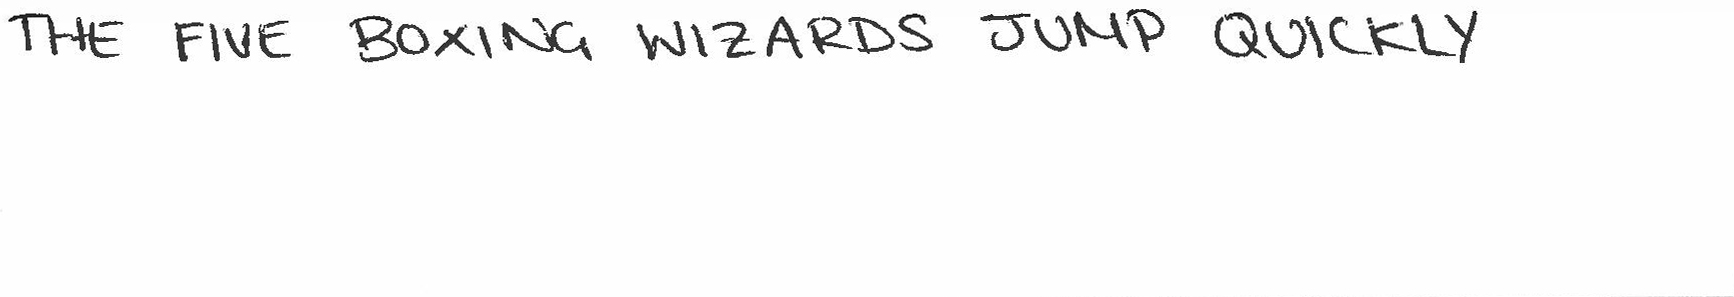 THE FIVE BOXING WIZARDS JUMP QUICKLY